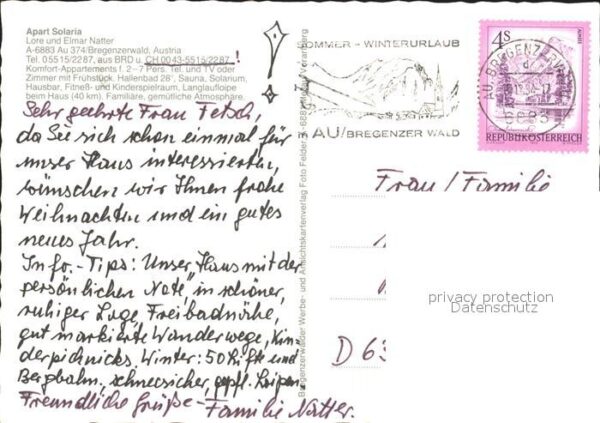 Apart Solaria
Lore und Elmar Natter
A-6883 Au 374/Bregenzerwald, Austria
Tel. 05515/2287, aus BRD u. CH 0043-5515/2287 !
Komfort-Appartements f. 2-7 Pers. Tel. und TV oder
Zimmer mit Frühstück. Hallenbad 28°, Sauna, Solarium,
Hausbar, Fitneß- und Kinderspielraum, Langlaufloipe
beim Haus (40 km). Familiäre, gemütliche Atmosphäre.
Sehr geehrte Frau Fetsch,
da Sie sich schon einmal für
unser Haus interessierten,
wünschen wir Ihnen frohe
Weihnachten und ein gutes
neues Jahr.
Info.-Tips: Unser "Haus mit der
persönlichen Note" in schöner,
ruhiger Lage, Freibadnähe,
gut markierte Wanderwege, Kin-
derpicknicks. Winter: 50 Lifte und
Bergbahn, schneesicher, gepfl. Loipen
Freundliche Grüße - Familie Natter.
Bregenzerwälder Werbe- und Ansichtskartenverlag Foto Felder
SOMMER - WINTERURLAUB
AU/BREGENZER WALD
AU, BREGENZERWALD
6883
4S
REPUBLIK ÖSTERREICH
Frau/Familie
D 63
privacy protection
Datenschutz